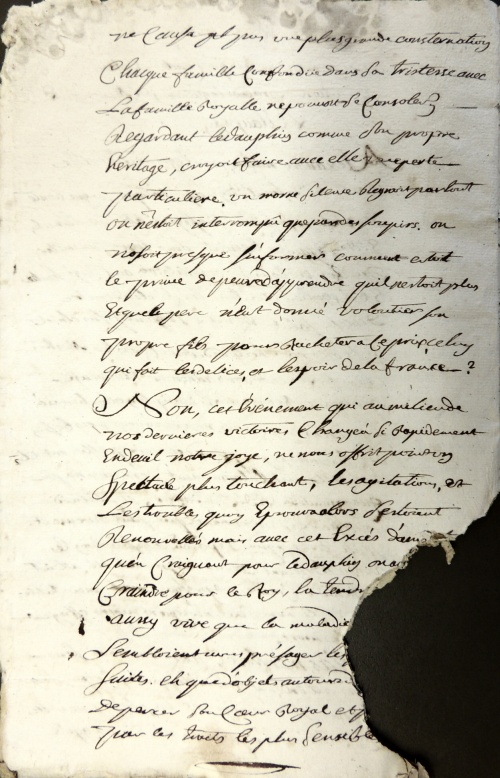 ne Causa pas une plus grande consternation
Chaque famille Confondüe dans Sa tristesse avec
La famille Royalle ne pouvoit Se Consoler
Regardant le dauphin comme Son propre
heritage, croyoit faire avec elle une perte
particuliere, un morne Silence Regnoit partout
on n'estoit interrompû que par des soupirs. on
n'osoit presque s'informer comment estoit
le prince de peur d'apprendre qu'il n'estoit plus
Et quel pere n'eut donné volontier son
propre fils pour Racheter a Ce prix celuy
qui fait les delices, et l'espoir de la france ?
Non, cet Evénement qui au milieu de
nos dernieres victoires Changea Si Rapidement
En deüil notre joye, ne nous offrit point un
Spectacle plus touchant, les agitations, et
Les troubles qu'on Eprouva alors S'estoient
Renouvellés mais avec cet Excés d'am
qu'en Craignant pour le dauphin on
Craindre pour le Roy, la tend
aussy vive que la maladie
Sembloient nous présager les
Suites. eh que d'objets autour
de percer Son Cœur Royal et
par les traits les plus Sensible